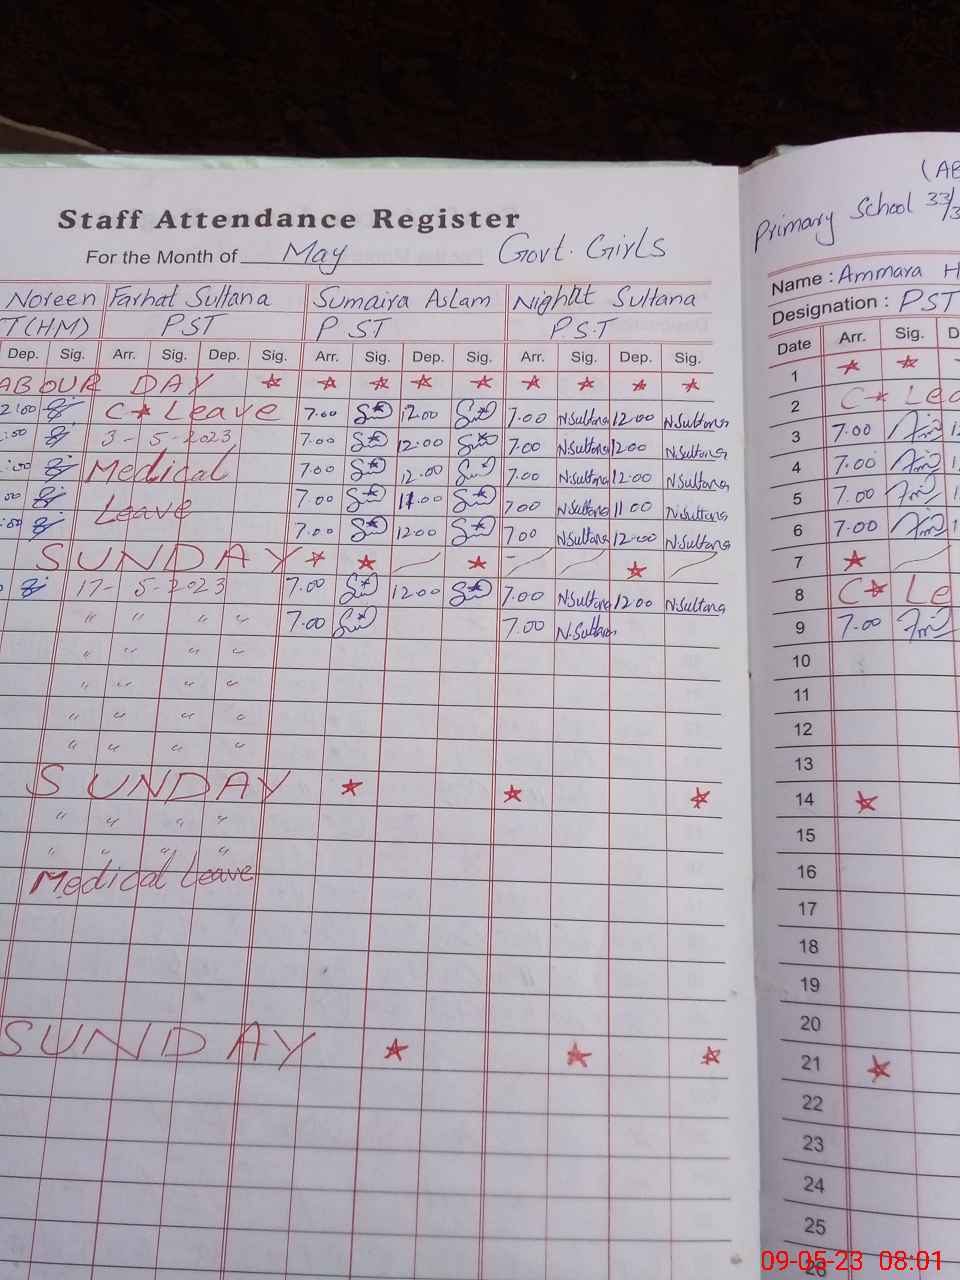 Staff Attendance Register
For the Month of May Govt. Girls
Noreen Farhat Sultana Sumaira Aslam Nighat Sultana
T(HM) PST P ST P.S.T
Dep. Sig. Arr. Sig. Dep. Sig. Arr. Sig. Dep. Sig. Arr. Sig. Dep. Sig.
ABOUR DAY
2:00 C Leave 7.00 12.00 7.00 N.Sultana 12.00 N.Sultana
:00 3-5-2023 7.00 12:00 7.00 N.Sultana 12.00 N.Sultana
:00 Medical 7.00 12.00 7.00 N.Sultana 12.00 N.Sultana
00 Leave 7.00 11.00 7.00 N.Sultana 11.00 N.Sultana
:00 7.00 12:00 7.00 N.Sultana 12.00 N.Sultana
SUNDAY
17-5-2023 7.00 12.00 7.00 N.Sultana 12.00 N.Sultana
" " " " 7.00 7.00 N.Sultana
" " " "
" " " "
" " " "
" " " "
SUNDAY
" " " "
" " " "
Medical Leave
SUNDAY
(AB
Primary School 33/3
Name : Ammara H
Designation : PST
Date Arr. Sig. D
1
2 C Lea
3 7.00
4 7.00
5 7.00
6 7.00
7
8 C Le
9 7.00
10
11
12
13
14
15
16
17
18
19
20
21
22
23
24
25
26
09-05-23 08:01